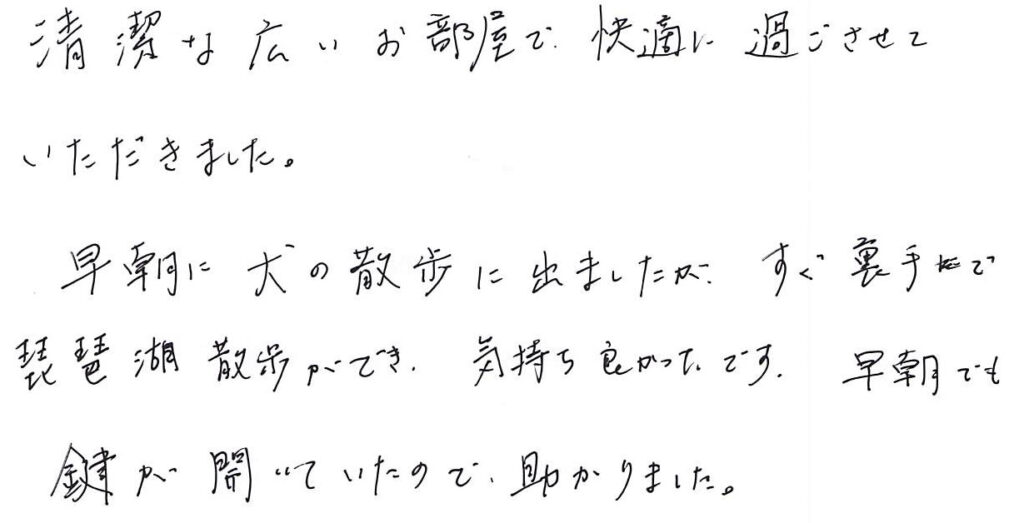 清潔な広いお部屋で、快適に過ごさせて
いただきました。
早朝に犬の散歩に出ましたが、すぐ裏手で
琵琶湖散歩ができ、気持ち良かったです。早朝でも
鍵が開いていたので、助かりました。